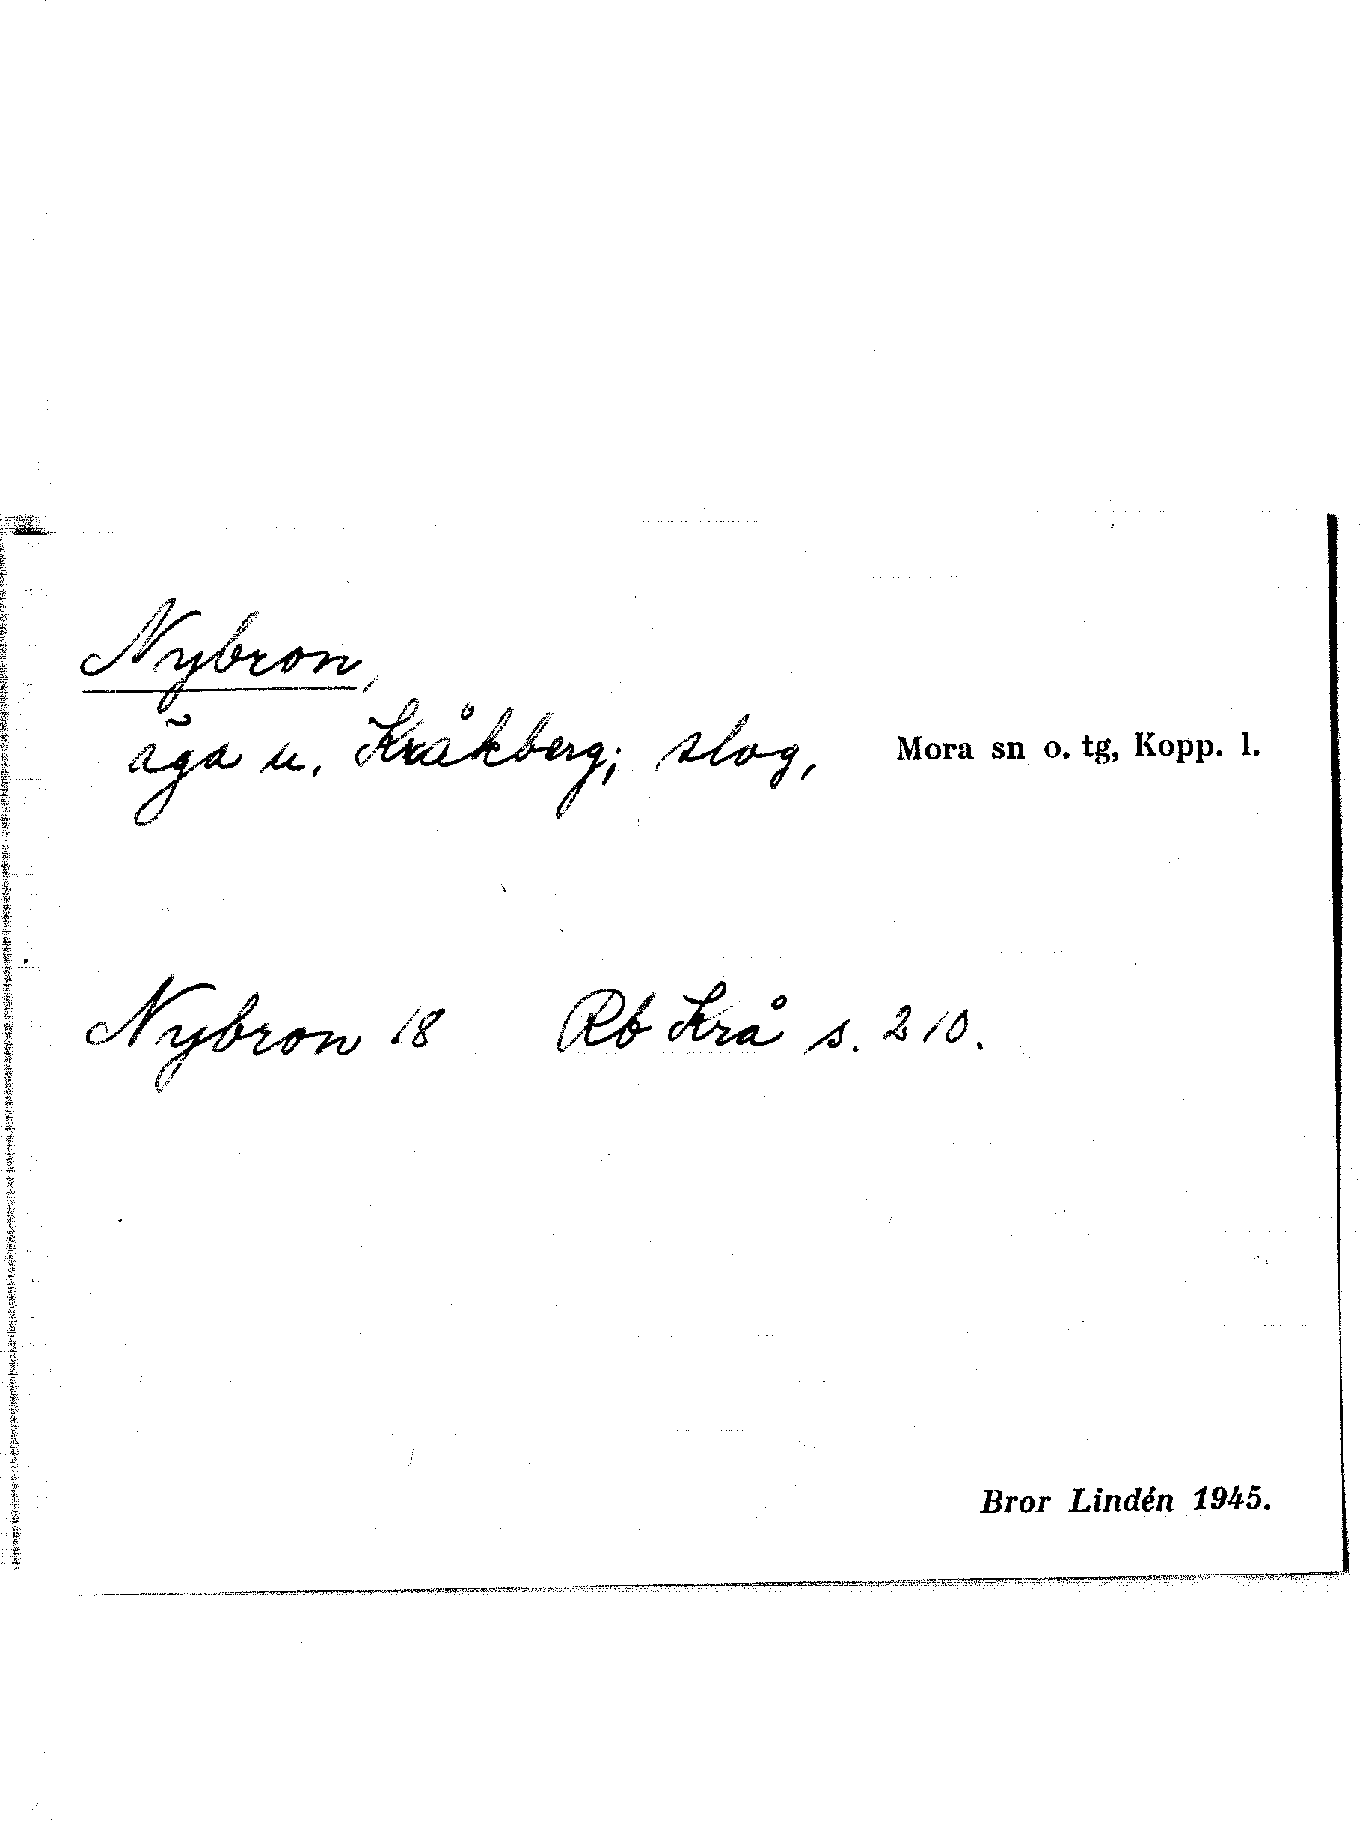 Nybron,
äga u. Kråkberg; slog, Mora sn o. tg, Kopp. l.
Nybron 18 Rb Krå s. 210.
Bror Lindén 1945.